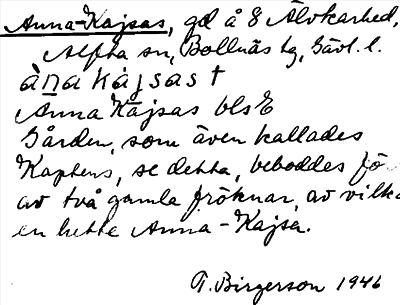 Anna-Kajsas, gd å 8 Älvkarhed,
Alfta sn, Bollnäs tg, Gävl. l.
àna kajsas t
Anna Kajsas bls E
Gården, som även kallades
Kaptens, se detta, beboddes för
av två gamla fröknar, av vilka
en hette Anna-Kajsa.
T. Birgerson 1946